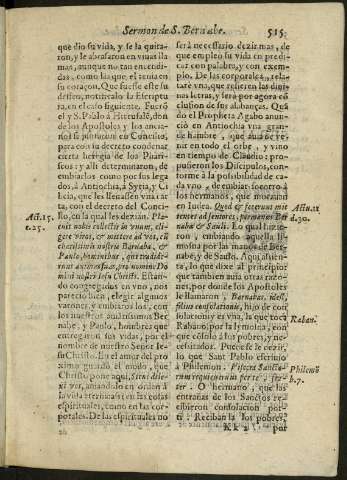 Sermon de S. Bernabe. 515.
que dio su vida, y se la quita-
ron, y le abrasaron en vivas lla
mas, aunque no tan encendi-
das, como las que el tenia en
su coraçon. Que fuesse este su
desseo, notifícalo la Escriptu-
ra, en el caso siguiente. Fueró
el y S. Pablo à Hierusalé, don
de los Apostoles y los ancia-
nos se juntaron en Concilio,
para con su decreto condenar
cierta heregia de los Phari-
seos: y alli determinaron, de
embiarlos como por sus lega
dos, à Antiochia, à Syria, y Ci
licia, que les llevassen vna car
ta, con el decreto del Conci-
Act. 15.
c. 25.
lio, en la qual les dezian. Pla-
cuit nobis collectis in vnum, eli-
gere viros, & mittere ad vos, cũ
charissimis nostris Barnaba, &
Paulo, hominibus, qui tradide-
runt animas suas, pro nomine Do
mini nostri Iesu Christi. Estan-
do congregados en vno, nos
parecio bien, elegir algunos
varones, y embiaros los, con
los nuestros amãtissimos Ber
nabe, y Paulo, hombres que
entregaron sus vidas, por el
nombre de nuestro Señor Ie-
su Christo. En el amor del pro
ximo guardò el modo, que
Christo pone aqui, Sicut dile-
xi vos, amandolo en orden à
la vida eterna: y en las cosas
espirituales, como en las cor-
porales. De las espirituales no
serà necessario deziros mas, de
que empleò su vida en predi-
car con palabra, y con exem-
plo. De las corporales, rela-
taré vna, que refieren las diui
nas letras, y serà por agora cõ
clusion de sus alabanças. Quã
do el Propheta Agabo anun-
ciò en Antiochia vna gran-
de hambre, que auia de ve-
nir en todo el orbe, y vino
en tiempo de Claudio; pro-
pusieron los Discipulos, con-
forme à la possibilidad de ca-
da vno, de embiar socorro à
los hermanos, que morauan
en Iudea. Quod & fecerunt mit-
Actu. 11
d. 30.
tentes ad seniores, per manus Bar
nabæ & Sauli. Lo qual hizie-
ron, embiando aquella li-
mosna por las manos de Ber-
nabe, y de Saulo. Aqui assien-
ta, lo que dixe al principio
que tambien auia otra razo-
nes, por donde los Apostoles
le llamaron, Barnabas, idest,
filius consolationis, hijo de con
solacion: y es vna, la que toca
Raban.
Rabano, por la lymosna, con
que cõsolo à los pobres, y ne-
cessitados. Puedese le dezir,
lo que Sant Pablo escriuio
à Philemon. Viscera Sancto-
Philemõ
b. 7.
rum requieuerunt per te, fra-
ter. O hermano, que las
entrañas de los Sanctos re-
cibieron consolacion por
ti. Reciban la los pobres,
Kk 2 por